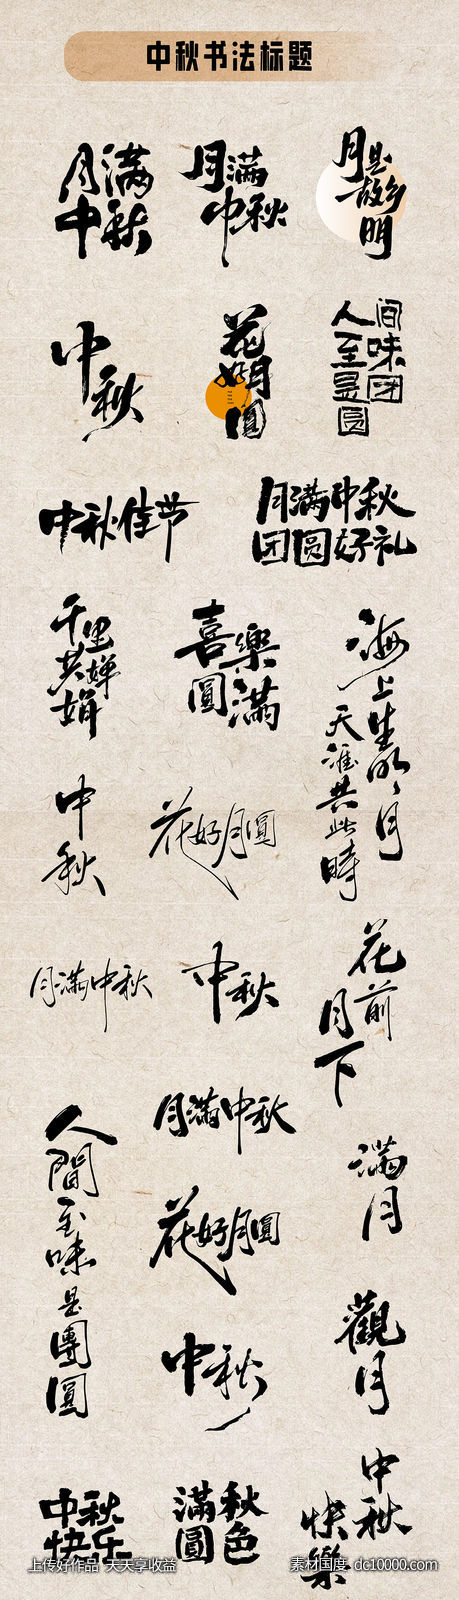 中秋书法标题
月满
中秋
月满
中秋
月是
故乡
明
中秋
花好月圆
人间至味是团圆
中秋佳节
月满中秋
团圆好礼
千里共婵娟
喜樂
圓滿
海上生明月
天涯共此時
中秋
花好月圓
月满中秋
中秋
花前月下
月满中秋
人間至味是團圓
花好月圓
满月
中秋
觀月
中秋
快乐
滿圓
秋色
中秋
快樂
上传好作品 天天享收益
素材国度 dc10000.com